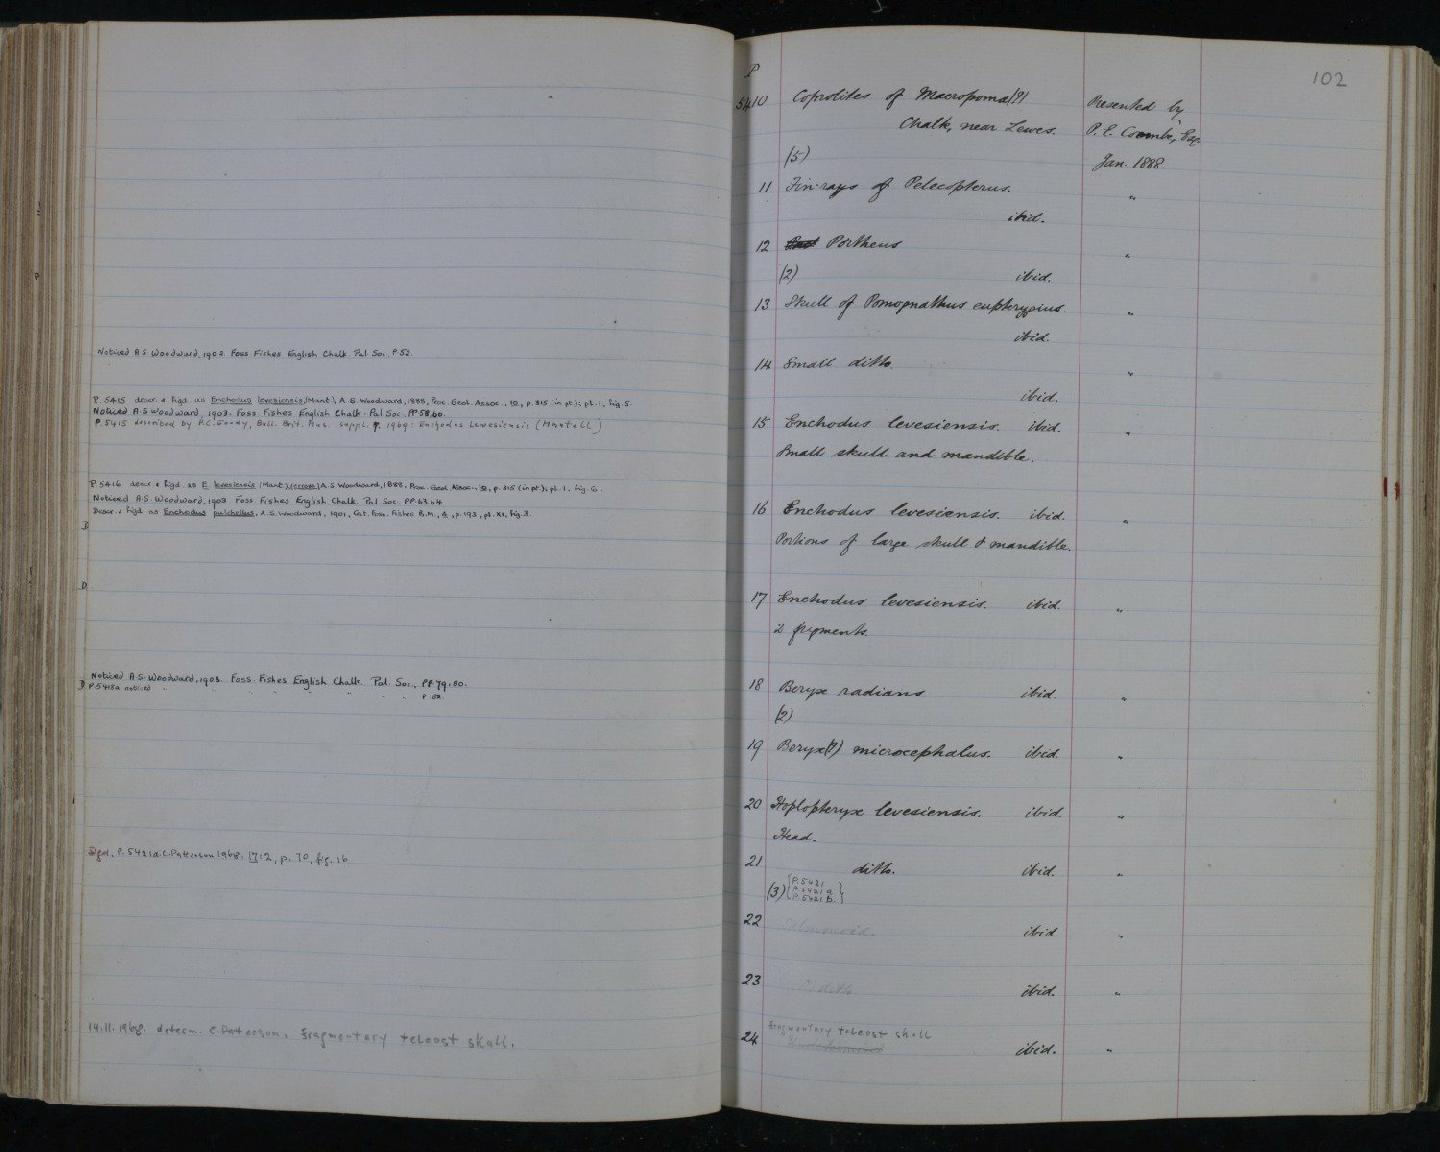 Noticed A.S. Woodward, 1902. Foss. Fishes English Chalk. Pal. Soc., P 52.
P. 5415 descr. & figd. as Enchodus levesiensis (Mant.) A.S. Woodward, 1888, Proc. Geol. Assoc., 10, p. 315 (in pt.); pl. 1, fig. 5.
Noticed A.S. Woodward, 1903. Foss. Fishes English Chalk. Pal Soc. PP 58,60.
P. 5415 described by P.C. Goody, Bull. Brit. Mus. suppl. 7. 1969: Enchodus Lewesiensis (Mantell)
P 5416 descr. & figd. as E. levesiensis (Mant.) A.S. Woodward, 1888, Proc. Geol. Assoc., 10, p. 315 (in pt.); pl. 1, fig. 6.
Noticed A.S. Woodward, 1903 Foss. Fishes English Chalk. Pal Soc. PP. 63,64
Descr. & figd as Enchodus pulchellus, A.S. Woodward, 1901, Cat. Foss. Fishes B.M., 4, p. 193, pl. XI, fig. 3.
D
D
Noticed A.S. Woodward, 1903. Foss. Fishes English Chalk. Pal. Soc., PP 79,80.
D P5418a noticed " " " " " P.
Figd. P. 5421a. C. Patterson 1968. 17:2, p. 70, fig. 16
14.11.1968. determ. C. Patterson. fragmentary teleost skull.
102
P
5410 Coprolites of Macropoma(?) Presented by
Chalk, near Lewes. P. E. Coombe, Esq.
(5) Jan. 1888
11 Fin-rays of Pelecopterus. "
ibid.
12 Portheus "
(2) ibid.
13 Skull of Pomognathus eupterygius. "
ibid.
14 Small ditto. "
ibid.
15 Enchodus levesiensis. ibid. "
Small skull and mandible.
16 Enchodus levesiensis. ibid. "
Portions of large skull & mandible.
17 Enchodus levesiensis. ibid. "
2 fragments.
18 Beryx radians ibid. "
(2)
19 Beryx(?) microcephalus. ibid. "
20 Hoplopteryx levesiensis. ibid. "
Head.
21 ditto. ibid. "
(3) {P. 5421
P. 5421 a
P. 5421 b.}
22 ibid "
23 ditto ibid. "
fragmentary teleost skull
24 ibid. "